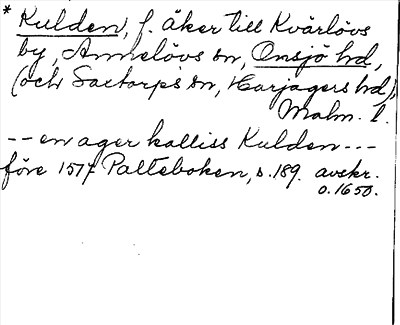 * Kulden, f. åker till Kvärlövs
by, Annelövs sn, Onsjö hd,
(och Saxtorps sn, Harjagers hd),
Malm. l.
-- en ager kalliss Kulden ---
före 1517 Palteboken, s. 189. avskr.
o. 1650.